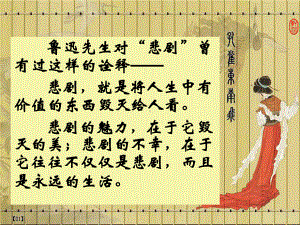 鲁迅先生对“悲剧”曾
有过这样的诠释——
悲剧，就是将人生中有
价值的东西毁灭给人看。
悲剧的魅力，在于它毁
灭的美；悲剧的不幸，在于
它往往不仅仅是悲剧，而且
是永远的生活。
孔雀东南飞
【21】